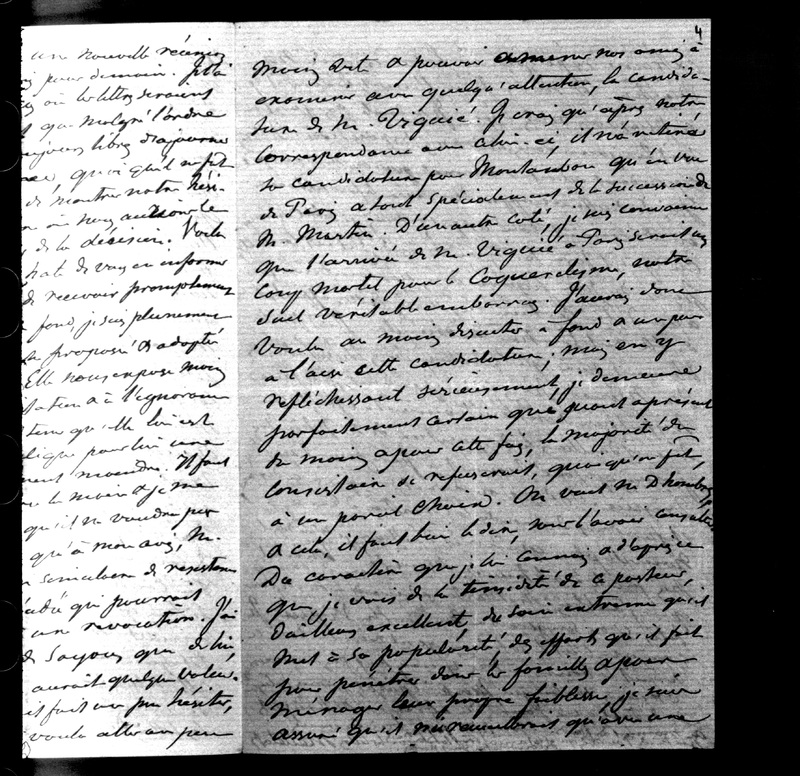 4
une nouvelle réunion
pour demain.
où les lettres seraient
qui malgré l'ordre
toujours libres d'ajourner
quoi qu'il en fit
de montrer notre hési-
où nous aurions le
de la décision. Voilà
hâte de vous en informer
de recevoir promptement
fond, je suis pleinement
proposé & adopté
Elle nous expose moins
à l'ignorance
qu'elle lui est
pour lui une
moindre. Il faut
le moins & je ne
qu'il ne voudra pas
qu'à mon avis, M.
simulacre de résistance
qui pourrait
une révocation. J'ai
de Sayous que de lui
aurait quelque valeur.
il faut un peu hésiter,
voulu aller un peu
moins vite & pouvoir amener nos amis à
examiner avec quelqu'attention, la candida-
ture de M. Viguié. Je crois qu'après notre
correspondance avec celui-ci, il n'a retiré
sa candidature pour Montauban qu'en vue
de Paris & tout spécialement de la succession de
M. Martin. D'un autre coté, je suis convaincu
que l'arrivée de M. Viguié à Paris serait un
coup mortel pour le Coquerelisme, notre
seul véritable embarras. J'aurais donc
voulu au moins discuter à fond & un peu
à l'aise cette candidature; mais en y
refléchissant sérieusement, je demeure
parfaitement certain que quant à présent
du moins & pour cette fois, la majorité du
Consistoire se refuserait, quoi qu'on fit,
à un pareil choix. On veut M. Dhombres
& cela, il faut bien le dire, sans l'avoir consulté.
Du caractère que je lui connais & d'après ce
que je vois de la timidité de ce pasteur,
d'ailleurs excellent, du soin extrême qu'il
met à sa popularité, des efforts qu'il fait
pour pénétrer dans les familles & pour
ménager leur propre faiblesse, je suis
assuré qu'il qu'avec une